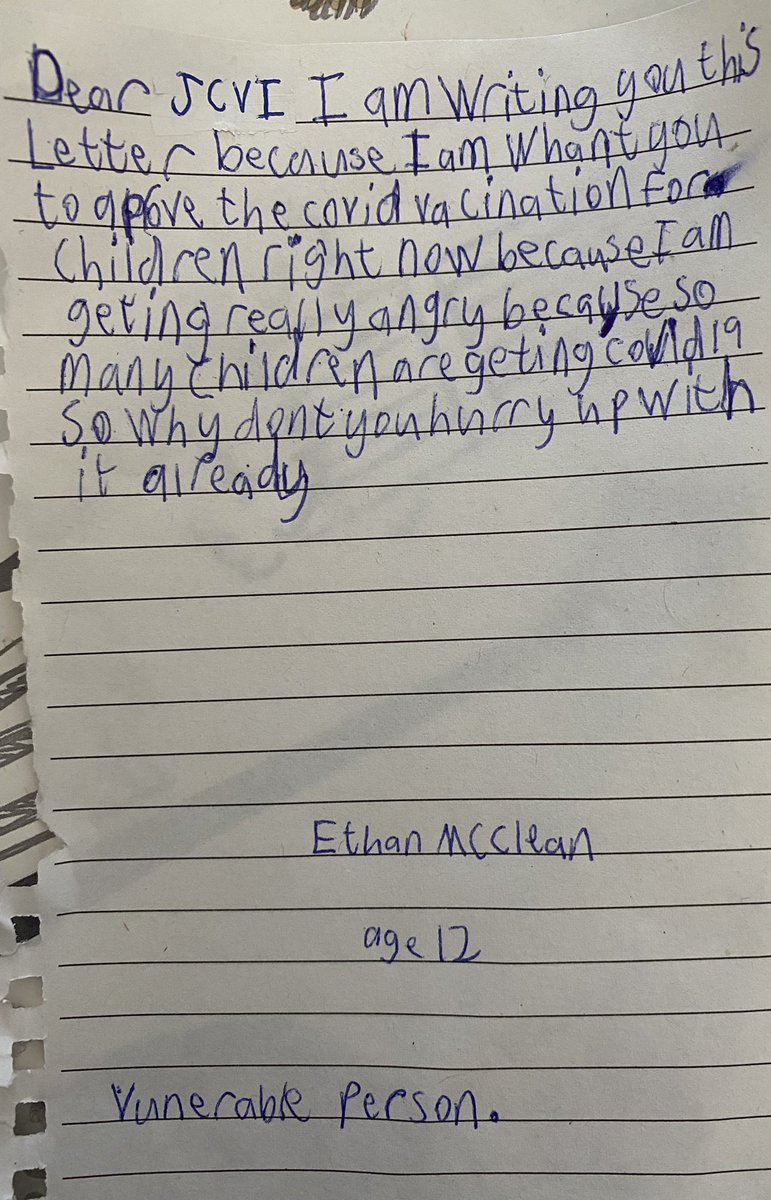 Dear JCVI I am writing you this
Letter because I am whant you
to aprove the covid vacination for
Children right now because I am
geting really angry because so
many children are geting covid 19
so why dont you hurry up with
it already
Ethan McClean
age 12
Vunerable Person.